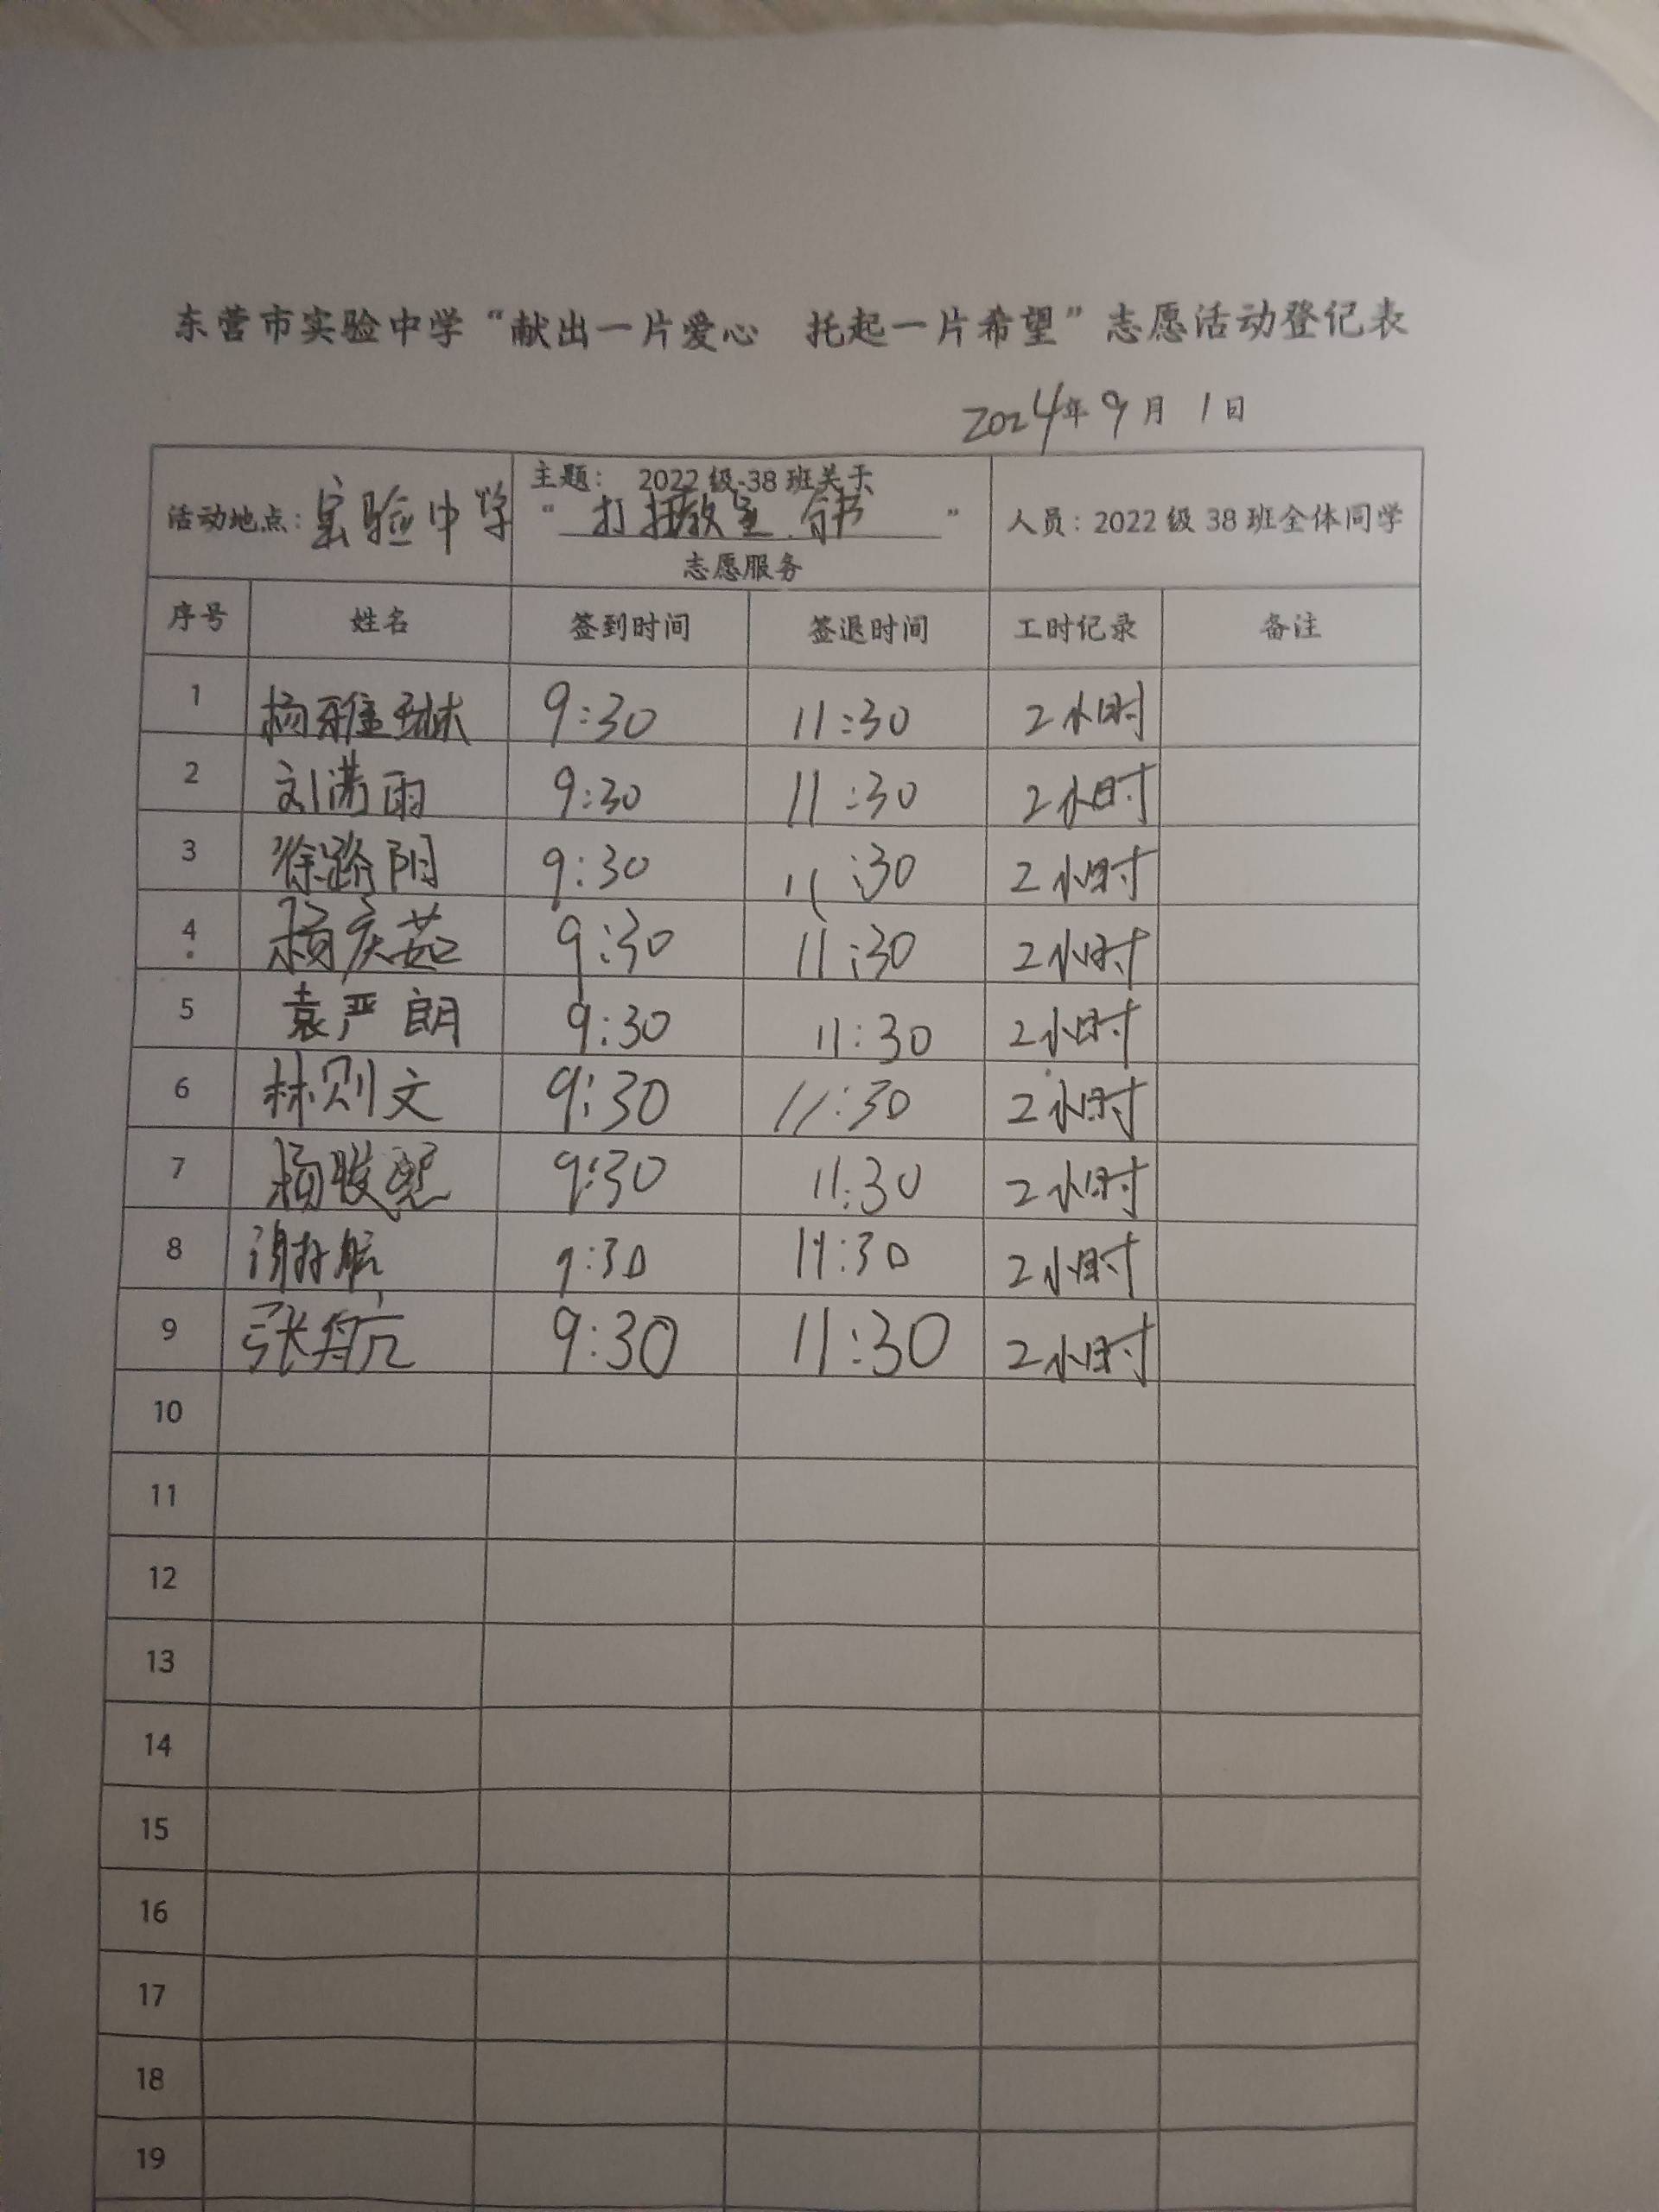 东营市实验中学“献出一片爱心 托起一片希望”志愿活动登记表
2024年9月1日
活动地点：实验中学 主题： 2022级-38班关于 人员：2022级38班全体同学
“打扫教室、 书”
志愿服务
序号 姓名 签到时间 签退时间 工时记录 备注
1 杨雅琳 9:30 11:30 2小时
2 刘 雨 9:30 11:30 2小时
3 徐路阳 9:30 11:30 2小时
4 杨庆茹 9:30 11:30 2小时
5 袁严朗 9:30 11:30 2小时
6 林则文 9:30 11:30 2小时
7 杨骏熙 9:30 11:30 2小时
8 航 9:30 11:30 2小时
9 张航 9:30 11:30 2小时
10
11
12
13
14
15
16
17
18
19